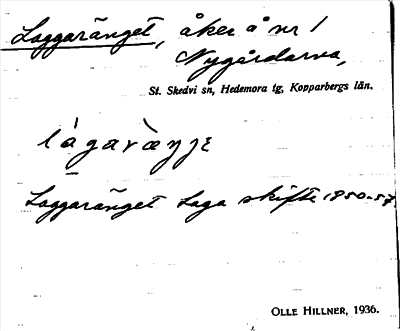 Laggaränget, åker å nr 1
Nygårdarna,
St. Skedvi sn, Hedemora tg, Kopparbergs län.
làgaràŋjɛ
Laggaränget Laga skifte 1850-57
OLLE HILLNER, 1936.